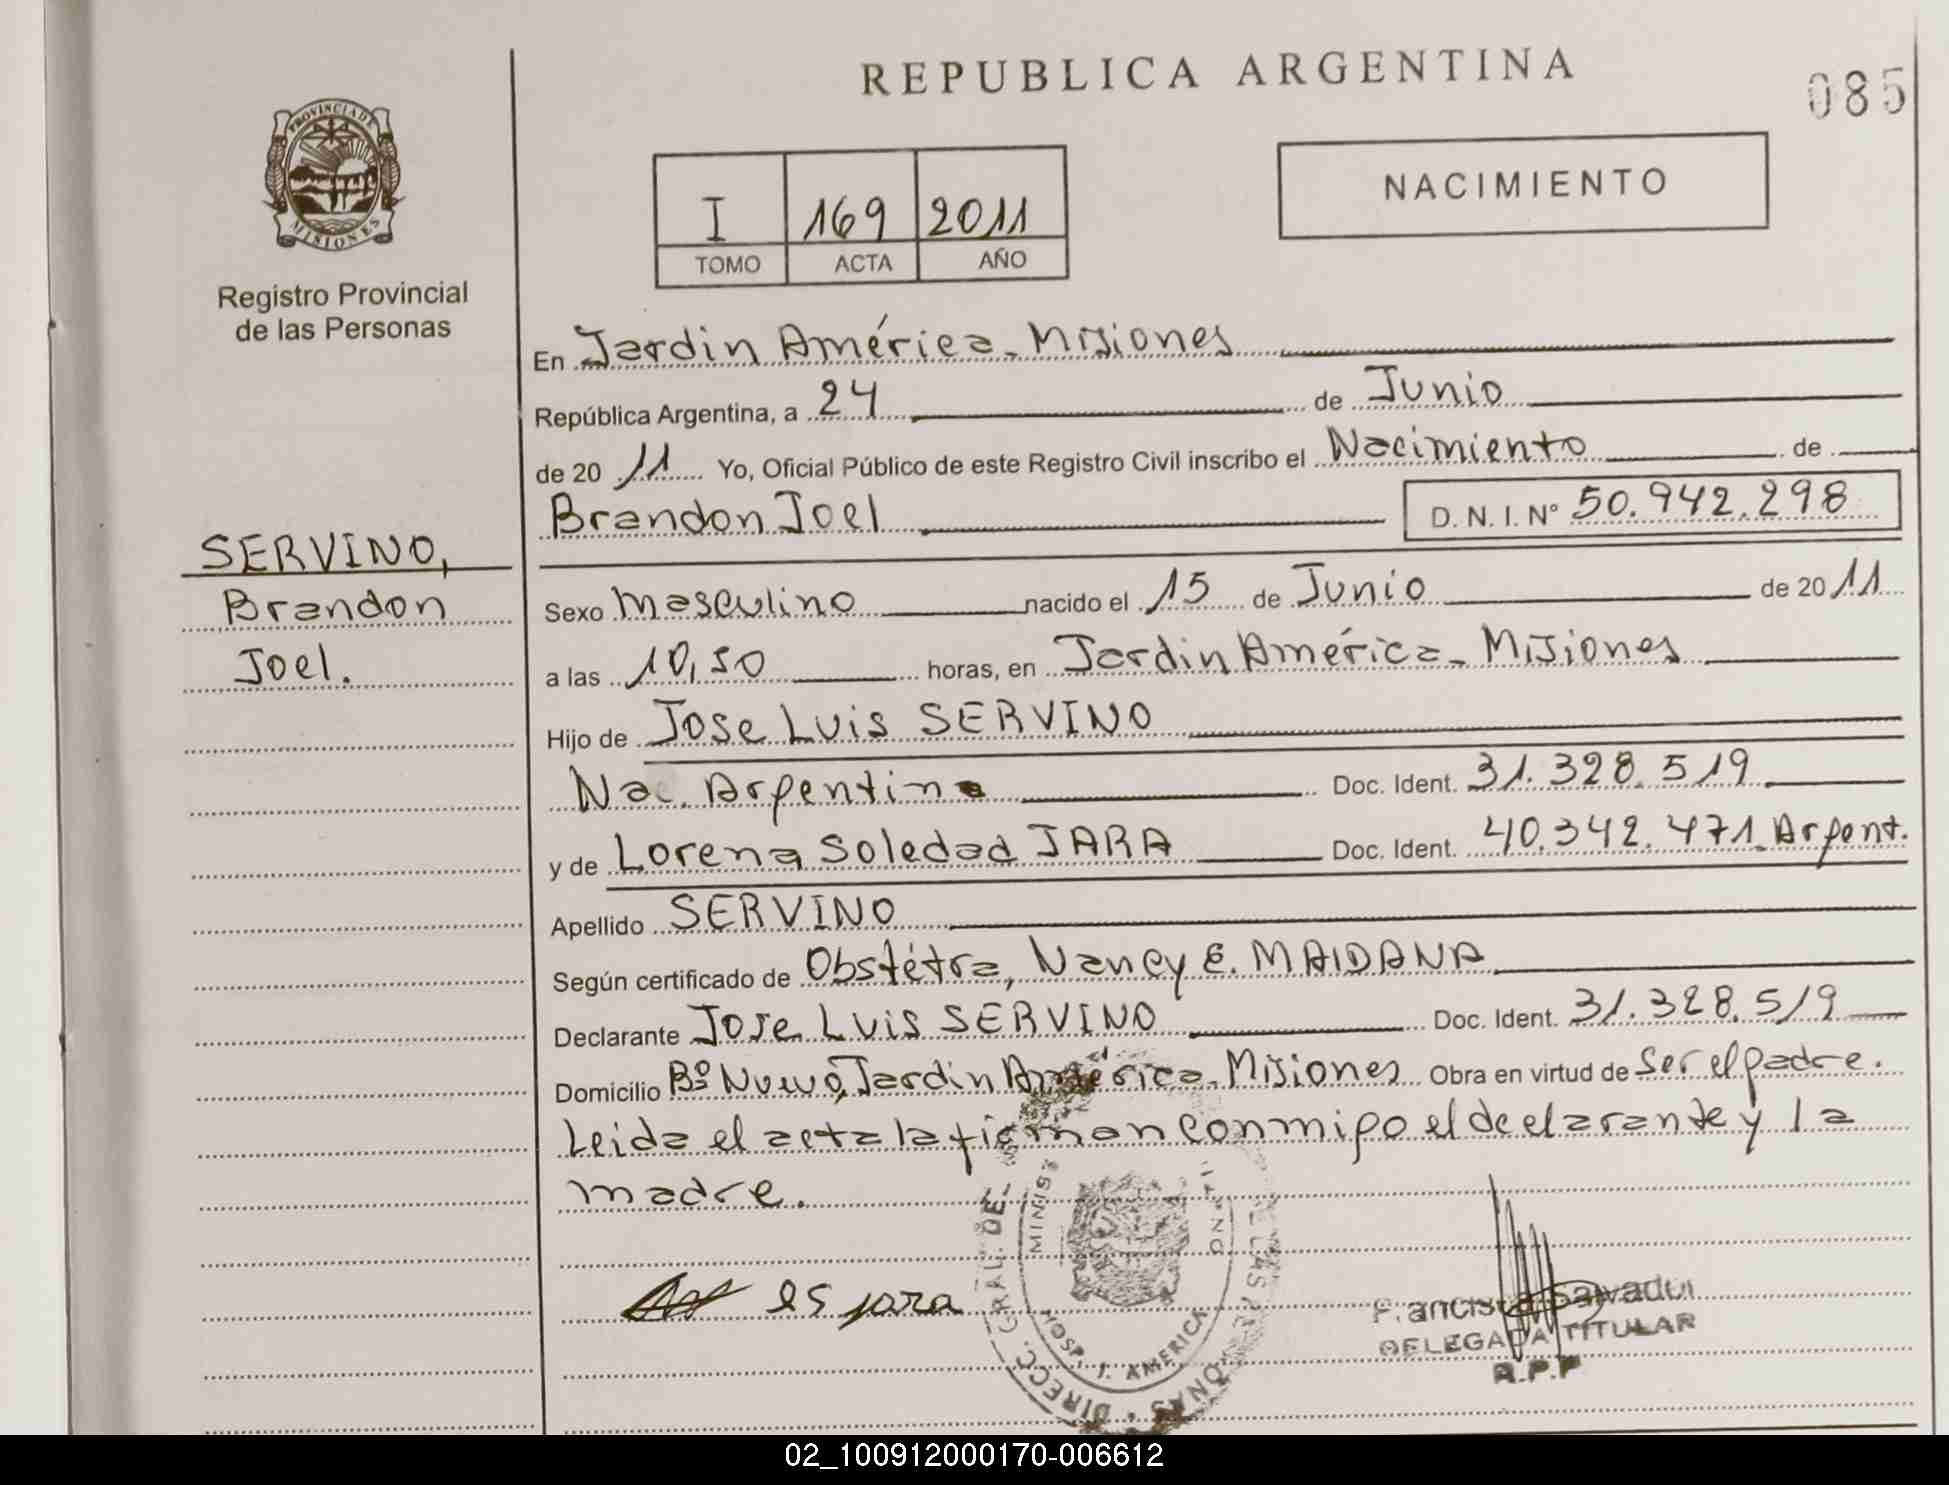 REPUBLICA ARGENTINA
085
PROVINCIA DE
MISIONES
Registro Provincial
de las Personas
I 169 2011
TOMO ACTA AÑO
NACIMIENTO
En Jardin América - Misiones
República Argentina, a 24 de Junio
de 20 11 Yo, Oficial Público de este Registro Civil inscribo el Nacimiento de
Brandon Joel D. N. I. N° 50.942.298
SERVINO,
Brandon
Joel.
Sexo Masculino nacido el 15 de Junio de 20 11
a las 10,50 horas, en Jardin América - Misiones
Hijo de Jose Luis SERVINO
Nac. Argentina Doc. Ident. 31.328.519
y de Lorena Soledad JARA Doc. Ident. 40.342.471. Argent.
Apellido SERVINO
Según certificado de Obstétra, Nancy E. MAIDANA
Declarante Jose Luis SERVINO Doc. Ident. 31.328.519
Domicilio Bº Nuevo, Jardin América - Misiones Obra en virtud de ser el padre.
Leida el acta la firman conmigo el declarante y la
madre.
es jara
DIRECC. GRAL. DEL
HOSP. J. AMERICA
Salvadori
DELEGADA TITULAR
R.P.P
02_100912000170-006612